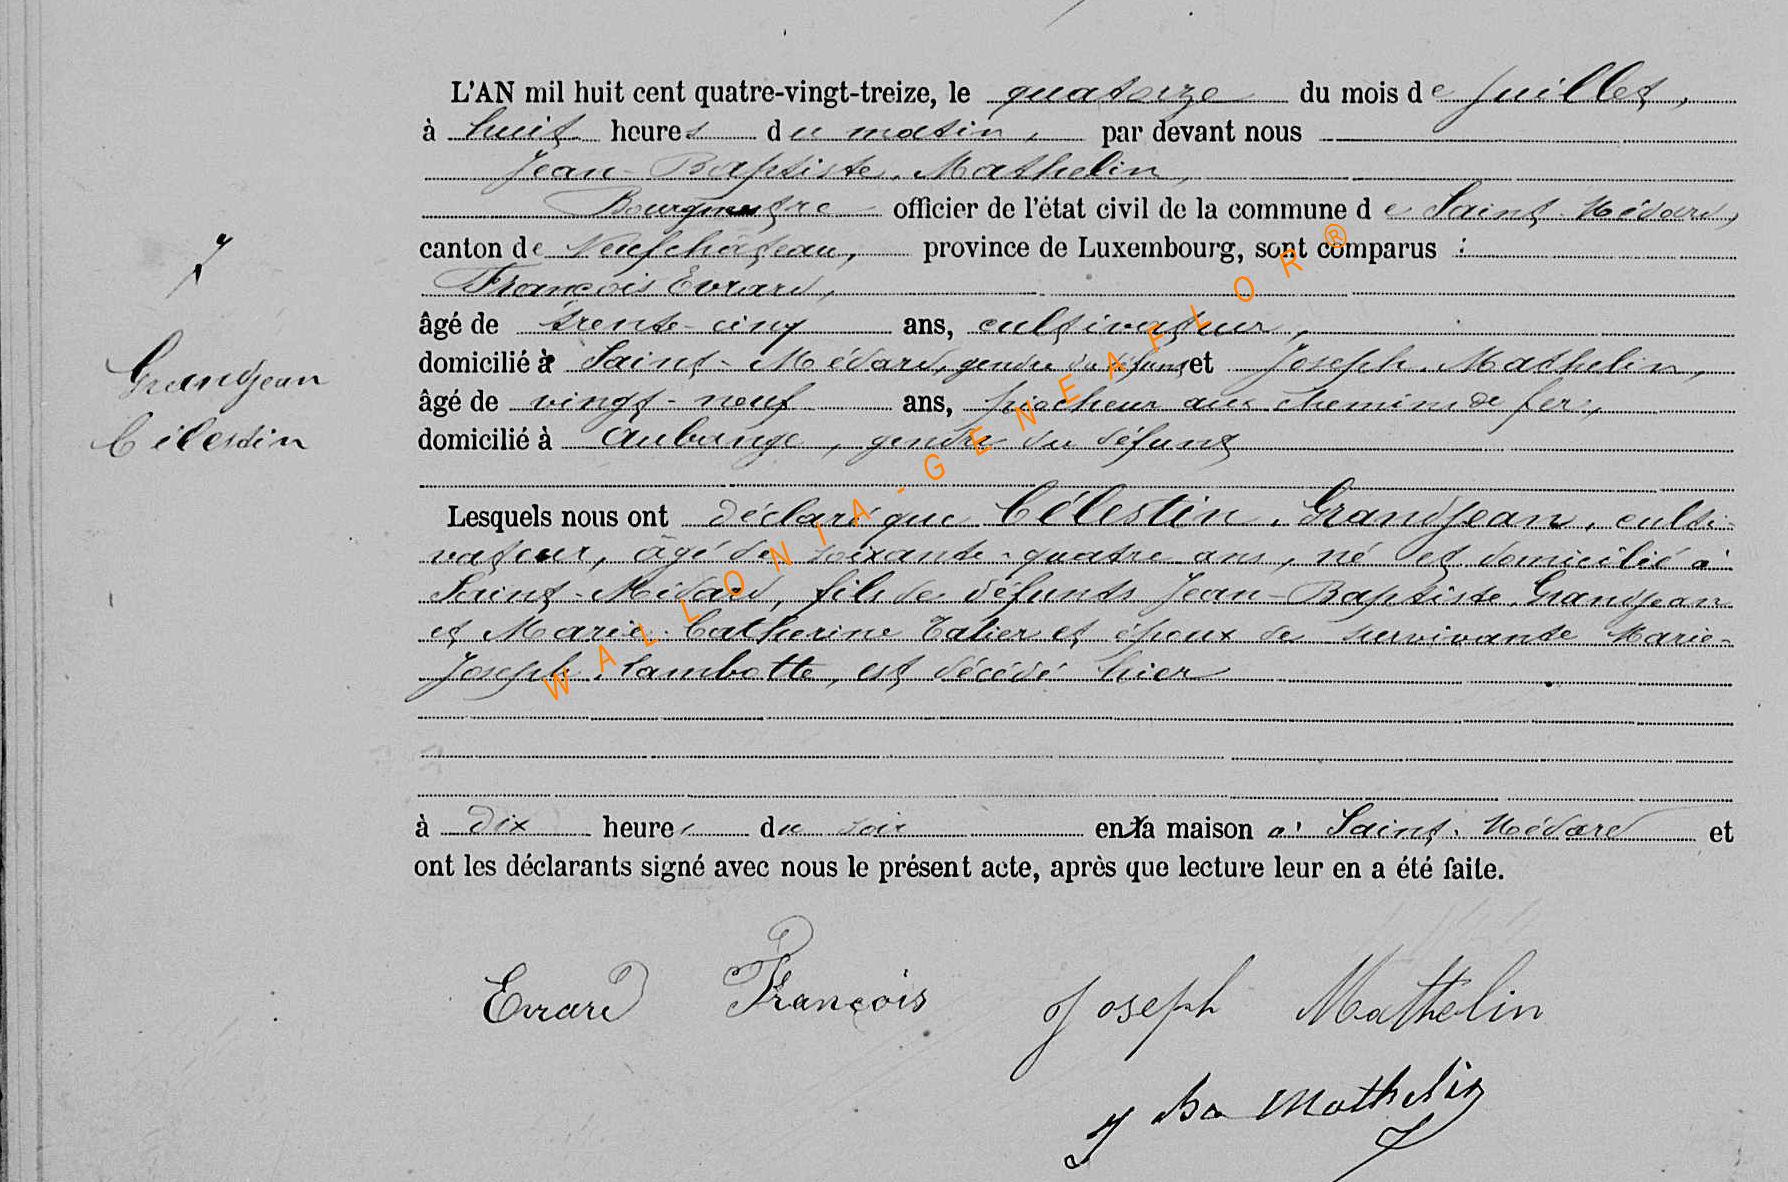 L'AN mil huit cent quatre-vingt-treize, le quatorze du mois de Juillet,
à huit heures du matin, par devant nous
Jean-Baptiste Mathelin,
Bourgmestre officier de l'état civil de la commune de Saint-Médard,
canton de Neufchâteau, province de Luxembourg, sont comparus :
François Evrard,
âgé de trente-cinq ans, cultivateur,
domicilié à Saint-Médard, gendre du défunt et Joseph Mathelin,
âgé de vingt-neuf ans, piocheur aux chemin de fer,
domicilié à Aubange, gendre du défunt
7
Grandjean
Célestin
Lesquels nous ont déclaré que Célestin Grandjean, culti-
vateur, âgé de soixante-quatre ans, né et domicilié à
Saint-Médard, fils de défunts Jean-Baptiste Grandjean
et Marie-Catherine Talier et époux de survivante Marie-
Joseph Lambotte, est décédé hier
à dix heures du soir en sa maison à Saint-Médard et
ont les déclarants signé avec nous le présent acte, après que lecture leur en a été faite.
Evrard François Joseph Mathelin
J Ba Mathelin
WALLONIA-GENEAFLOR®